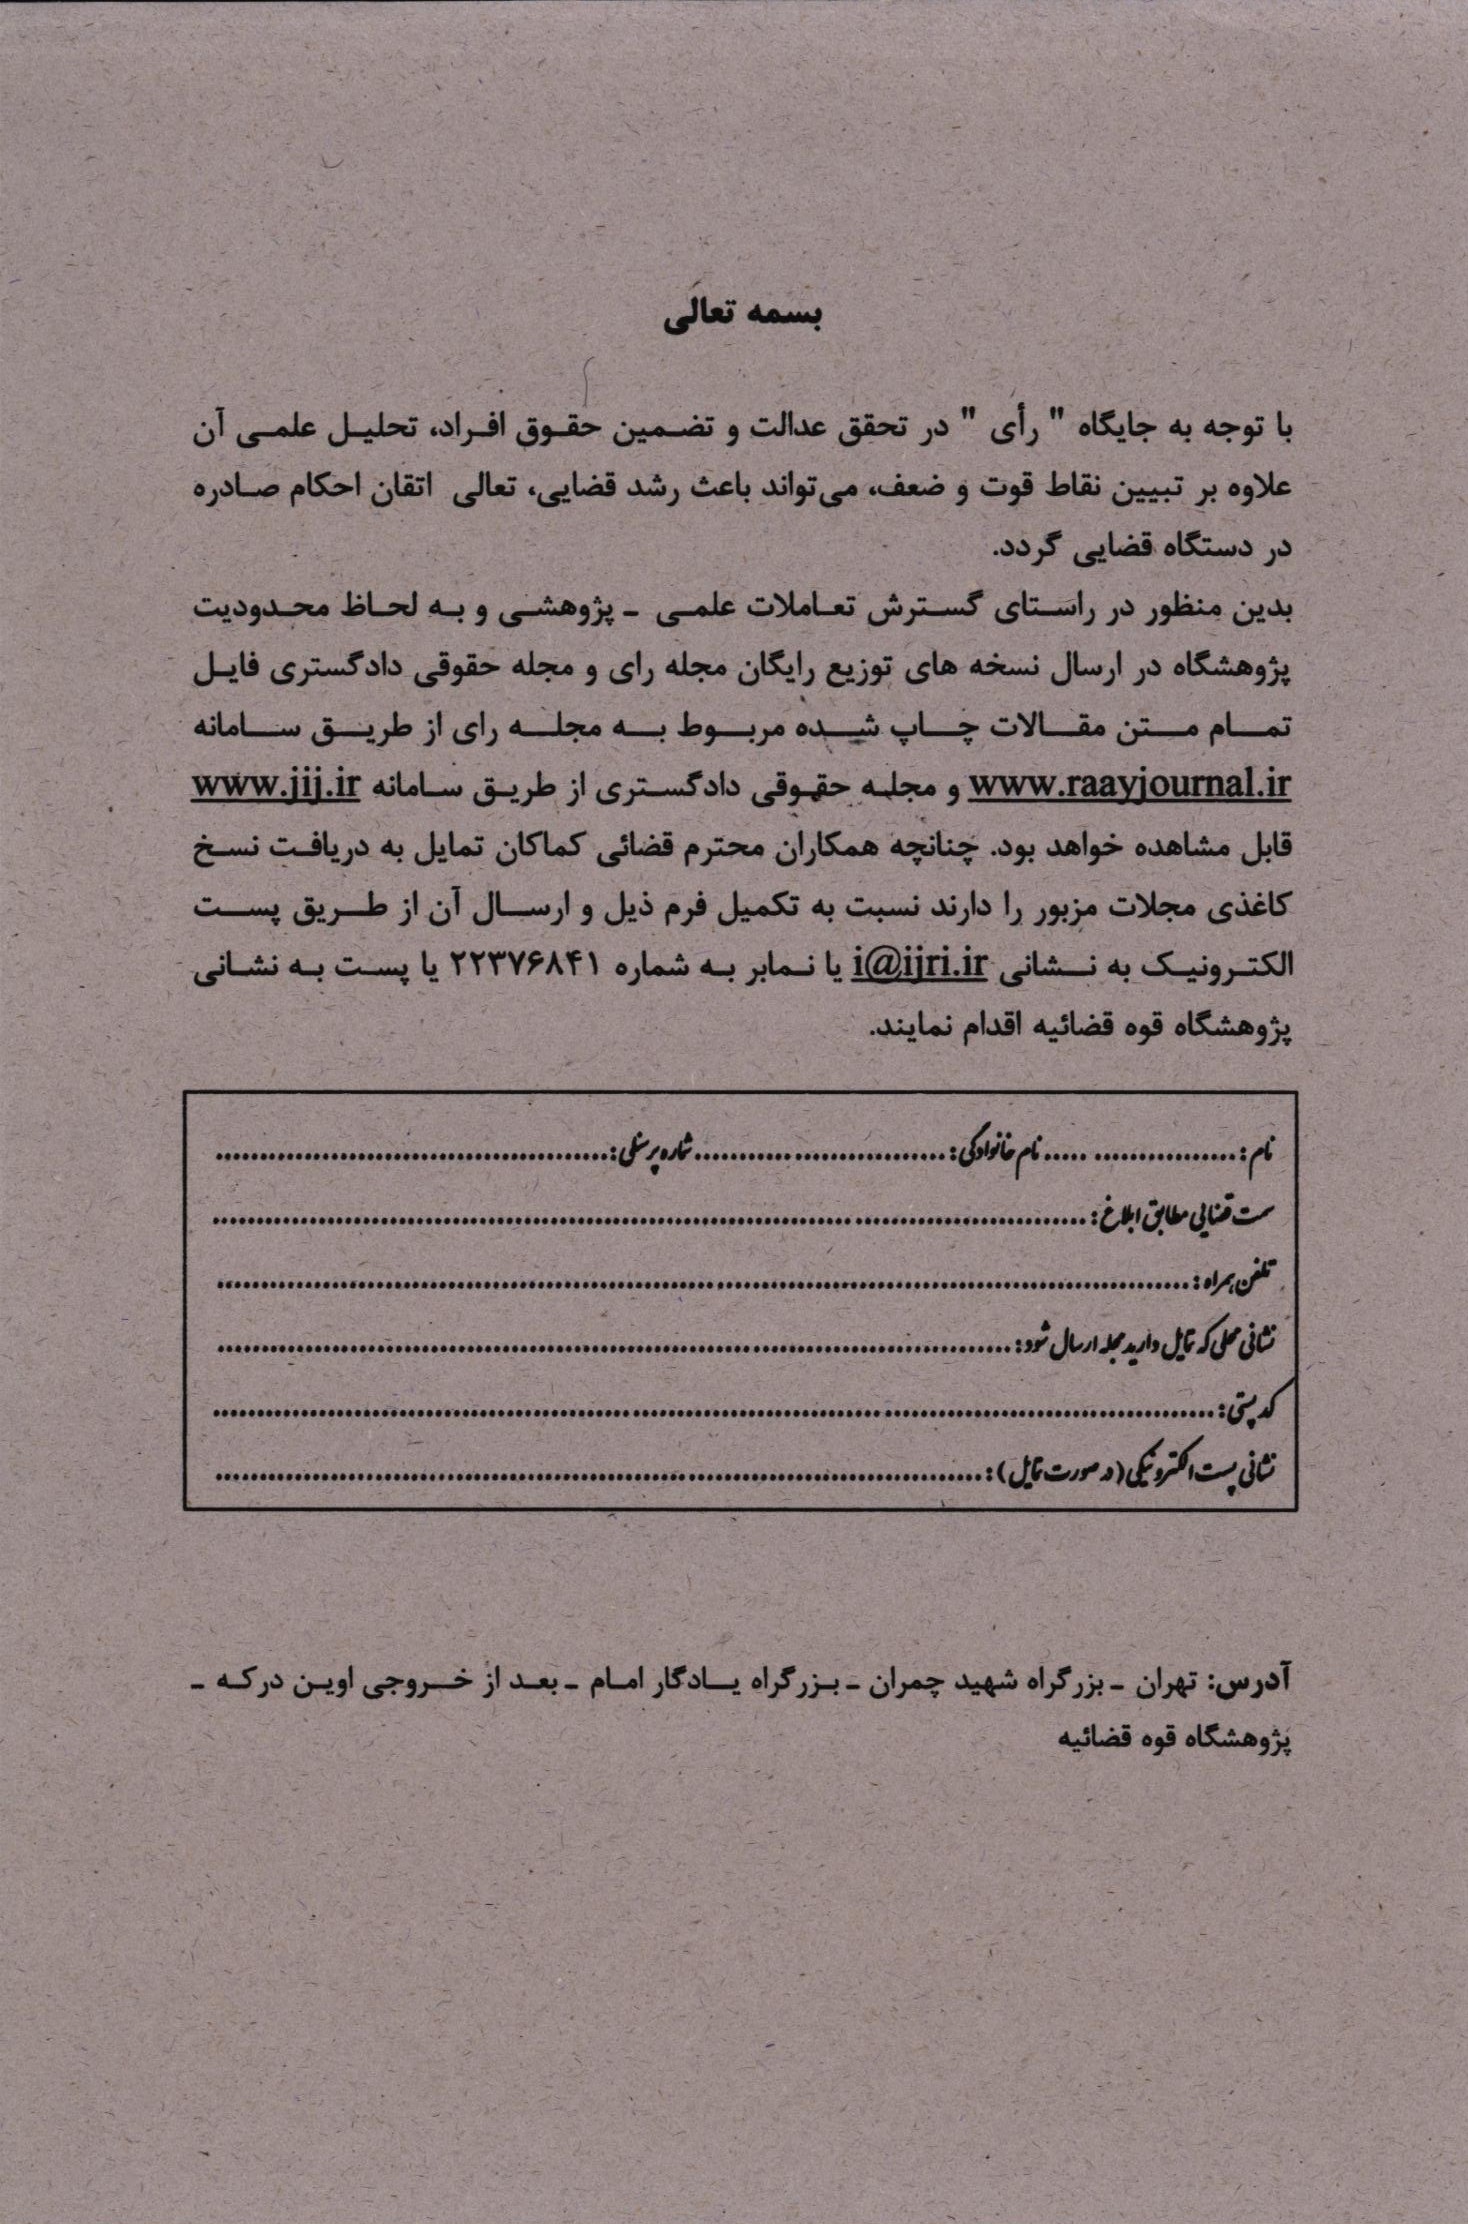 بسمه تعالی
با توجه به جایگاه " رأی " در تحقق عدالت و تضمین حقوق افراد، تحلیل علمی آن
علاوه بر تبیین نقاط قوت و ضعف، می‌تواند باعث رشد قضایی، تعالی اتقان احکام صادره
در دستگاه قضایی گردد.
بدین منظور در راستای گسترش تعاملات علمی - پژوهشی و به لحاظ محدودیت
پژوهشگاه در ارسال نسخه های توزیع رایگان مجله رای و مجله حقوقی دادگستری فایل
تمام متن مقالات چاپ شده مربوط به مجله رای از طریق سامانه
www.raayjournal.ir و مجله حقوقی دادگستری از طریق سامانه www.jij.ir
قابل مشاهده خواهد بود. چنانچه همکاران محترم قضائی کماکان تمایل به دریافت نسخ
کاغذی مجلات مزبور را دارند نسبت به تکمیل فرم ذیل و ارسال آن از طریق پست
الکترونیک به نشانی i@ijri.ir یا نمابر به شماره ۲۲۳۷۶۸۴۱ یا پست به نشانی
پژوهشگاه قوه قضائیه اقدام نمایند.
نام: ..................... نام خانوادگی: ............................. شماره پرسنلی: ............................................
سمت قضایی مطابق ابلاغ: ....................................................................................................
تلفن همراه: ................................................................................................................
نشانی محلی که تمایل دارید مجله ارسال شود: ..........................................................................................
کد پستی: ...................................................................................................................
نشانی پست الکترونیکی (در صورت تمایل): .......................................................................................
آدرس: تهران - بزرگراه شهید چمران - بزرگراه یادگار امام - بعد از خروجی اوین درکه -
پژوهشگاه قوه قضائیه